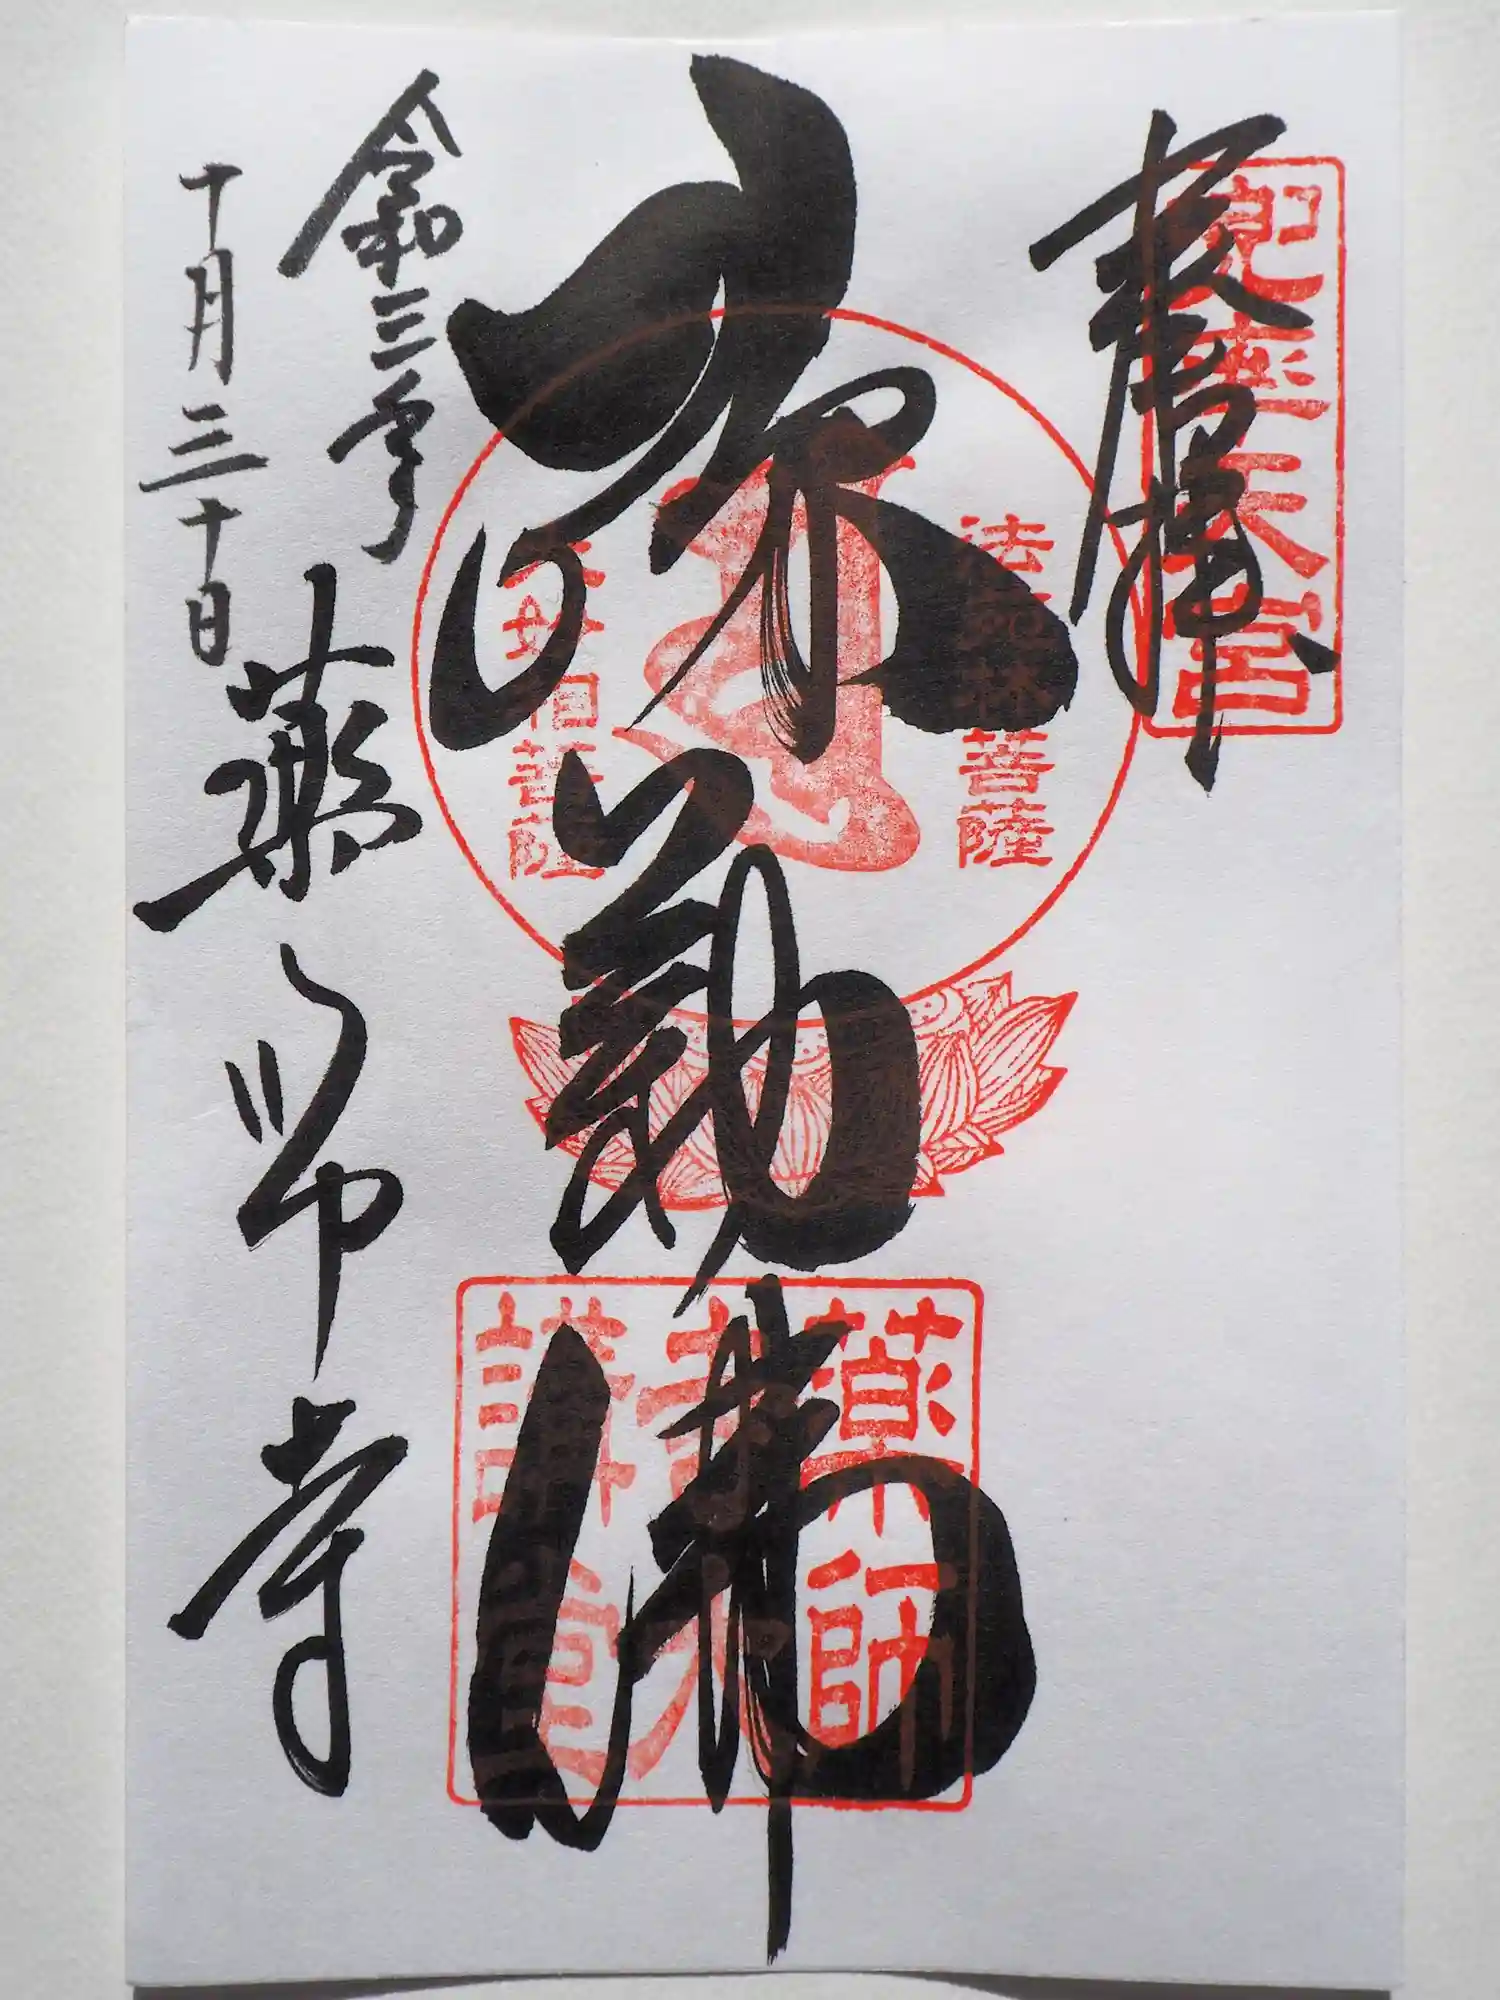 奉拝
兜率天宮
弥勒佛
法苑林菩薩
大妙相菩薩
薬師
寺大
講堂
令和三年
十月三十日
薬師寺